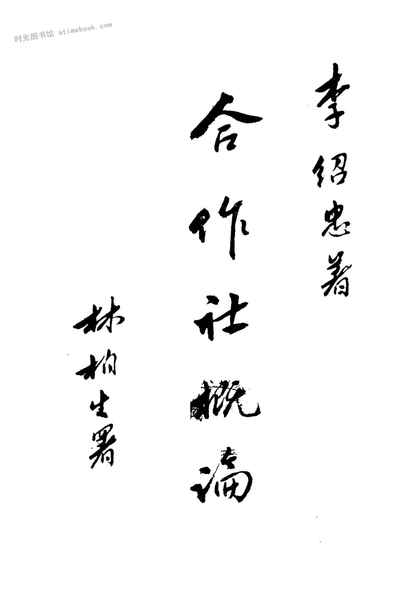 时光图书馆 mtimebook.com
李绍忠著
合作社概論
林柏生署